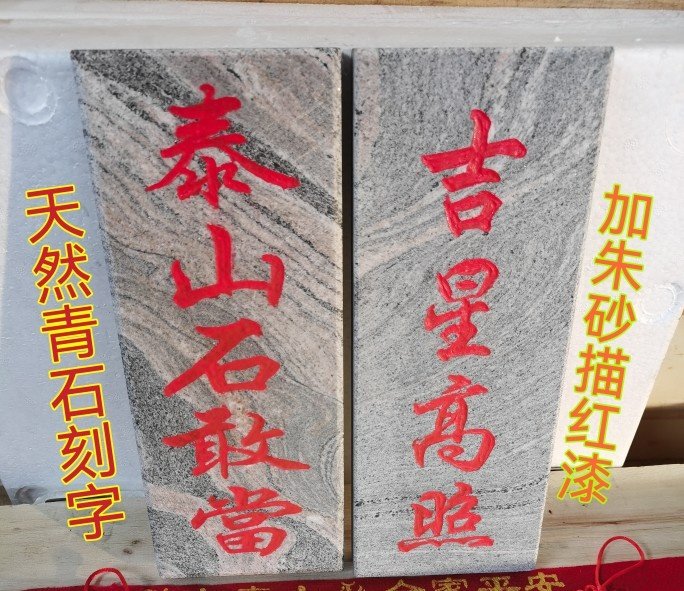 天然青石刻字
泰山石敢當
吉星高照
加朱砂描红漆